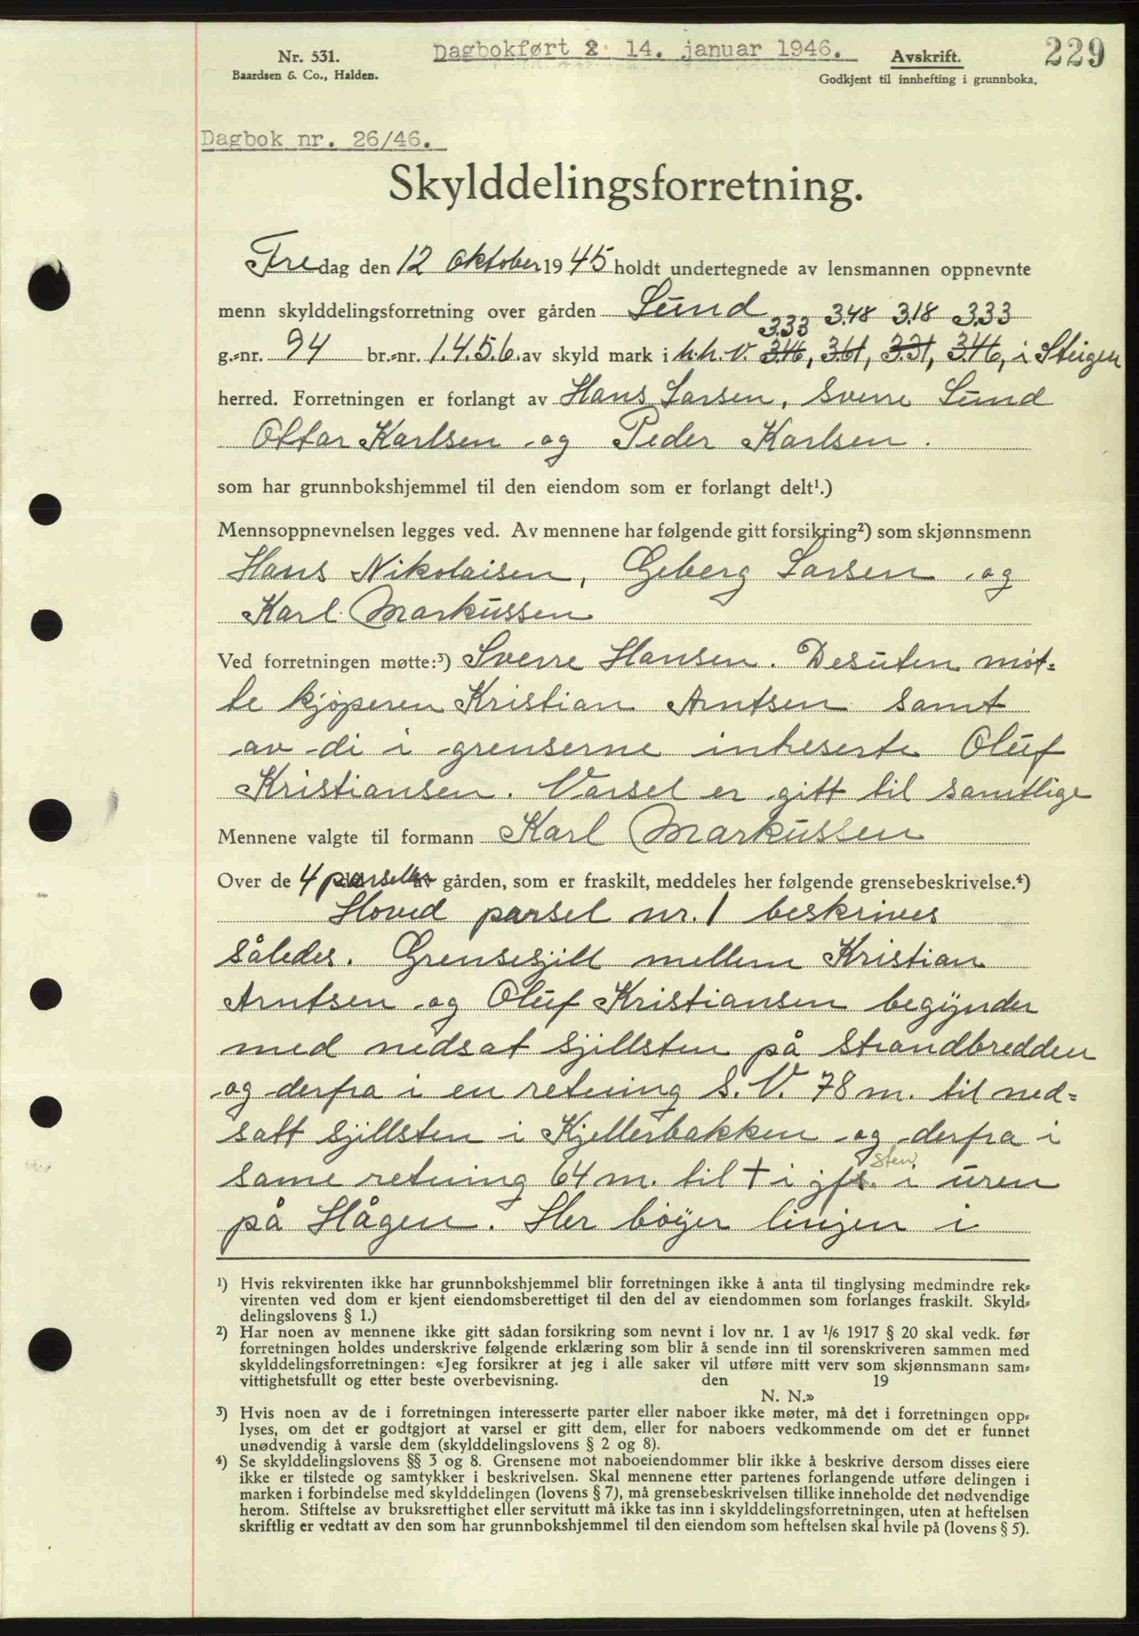 Nr. 531.
Baardsen & Co., Halden.
Dagbokført 2. 14. januar 1946.
Avskrift.
Godkjent til innhefting i grunnboka.
229
Dagbok nr. 26/46.
Skylddelingsforretning.
Fredag den 12 oktober 1945 holdt undertegnede av lensmannen oppnevnte
menn skylddelingsforretning over gården Sund
3.33 3.48 3.18 3.33
g.-nr. 94 br.-nr. 1.4.5.6. av skyld mark i h.h.v. 3.46, 3.61, 3.31, 3.46, i Steigen
herred. Forretningen er forlangt av Hans Larsen, Sverre Sund
Ottar Karlsen og Peder Karlsen.
som har grunnbokshjemmel til den eiendom som er forlangt delt¹.)
Mennsoppnevnelsen legges ved. Av mennene har følgende gitt forsikring²) som skjønnsmenn
Hans Nikolaisen, Geberg Larsen og
Karl Markussen
Ved forretningen møtte:³) Sverre Hansen. Desuten møt-
te kjøperen Kristian Arntsen samt
av di i grenserne intreserte Oluf
Kristiansen. Varsel er gitt til samtlige
Mennene valgte til formann Karl Markussen
Over de 4 parseller av gården, som er fraskilt, meddeles her følgende grensebeskrivelse.⁴)
Hoved parsel nr. 1 beskrives
således. Grensesjill mellem Kristian
Arntsen og Oluf Kristiansen begynder
med nedsat sjillsten på strandbredden
og derfra i en retning S.V. 78 m. til ned-
satt sjillsten i Kjellerbakken og derfra i
same retning 64 m. til + i jfs. sten i uren
på Hågen. Her bøyer linjen i
¹) Hvis rekvirenten ikke har grunnbokshjemmel blir forretningen ikke å anta til tinglysing medmindre rek-
virenten ved dom er kjent eiendomsberettiget til den del av eiendommen som forlanges fraskilt. Skyld-
delingslovens § 1.)
²) Har noen av mennene ikke gitt sådan forsikring som nevnt i lov nr. 1 av 1/6 1917 § 20 skal vedk. før
forretningen holdes underskrive følgende erklæring som blir å sende inn til sorenskriveren sammen med
skylddelingsforretningen: «Jeg forsikrer at jeg i alle saker vil utføre mitt verv som skjønnsmann sam-
vittighetsfullt og etter beste overbevisning. den 19
N. N.»
³) Hvis noen av de i forretningen interesserte parter eller naboer ikke møter, må det i forretningen opp-
lyses, om det er godtgjort at varsel er gitt dem, eller for naboers vedkommende om det er funnet
unødvendig å varsle dem (skylddelingslovens § 2 og 8).
⁴) Se skylddelingslovens §§ 3 og 8. Grensene mot naboeiendommer blir ikke å beskrive dersom disses eiere
ikke er tilstede og samtykker i beskrivelsen. Skal mennene etter partenes forlangende utføre delingen i
marken i forbindelse med skylddelingen (lovens § 7), må grensebeskrivelsen tillike inneholde det nødvendige
herom. Stiftelse av bruksrettighet eller servitutt må ikke tas inn i skylddelingsforretningen, uten at heftelsen
skriftlig er vedtatt av den som har grunnbokshjemmel til den eiendom som heftelsen skal hvile på (lovens § 5).